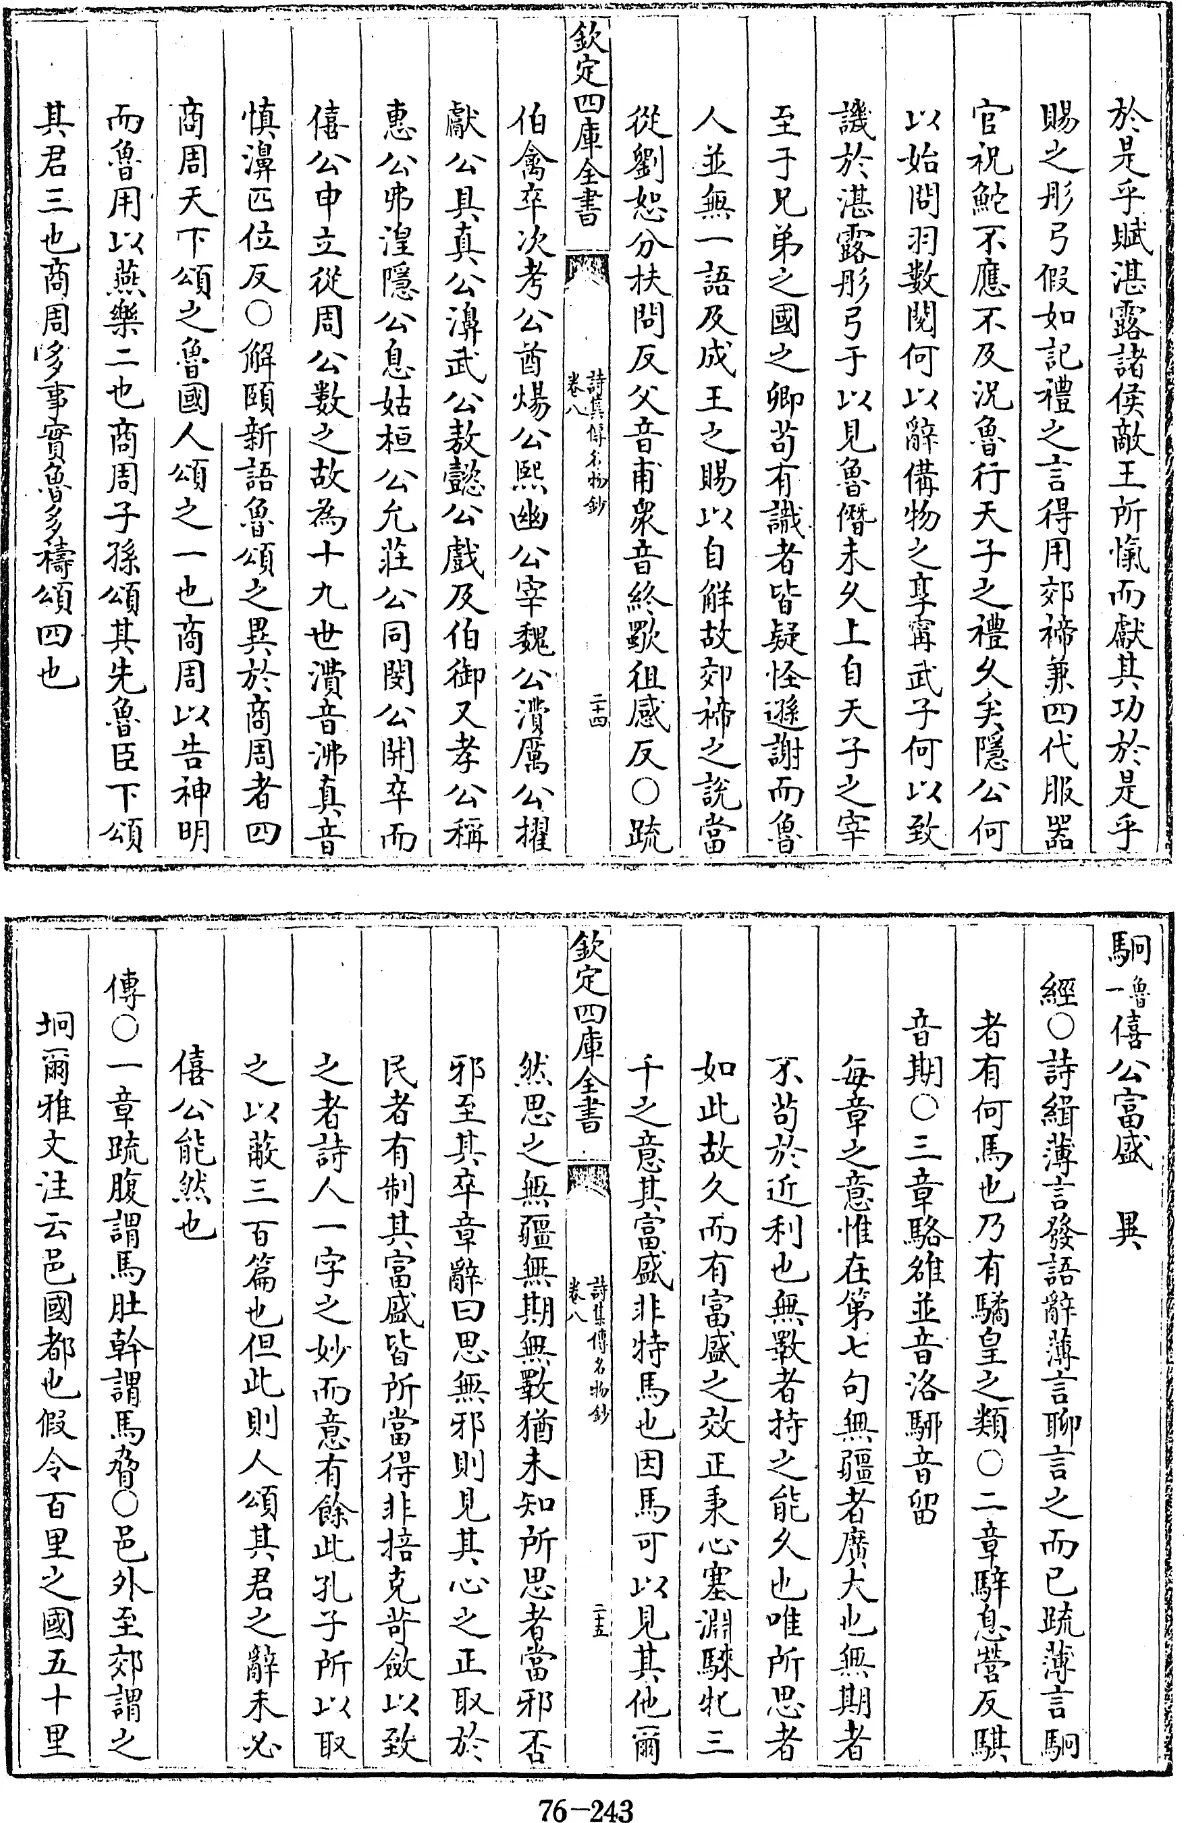 於是乎賦湛露諸侯敵王所愾而獻其功於是乎
賜之彤弓假如記禮之言得用郊禘兼四代服器
官祝鮀不應不及況魯行天子之禮久矣隱公何
以始問羽數閱何以辭備物之享寗武子何以致
譏於湛露彤弓于以見魯僭未久上自天子之宰
至于兄弟之國之卿苟有識者皆疑怪遜謝而魯
人並無一語及成王之賜以自解故郊禘之説當
從劉恕分扶問反父音甫衆音終歜徂感反○疏
欽定四庫全書
詩集傳名物鈔
卷八
二十四
伯禽卒次考公酋煬公熙幽公宰魏公㵒厲公擢
獻公具真公濞武公敖懿公戲及伯御又孝公稱
惠公弗湟隱公息姑桓公允莊公同閔公開卒而
僖公申立從周公數之故為十九世㵒音沸真音
慎濞匹位反○解頤新語魯頌之異於商周者四
商周天下頌之魯國人頌之一也商周以告神明
而魯用以燕樂二也商周子孫頌其先魯臣下頌
其君三也商周多事實魯多禱頌四也
駉魯一僖公富盛　異
經○詩緝薄言發語辭薄言聊言之而已疏薄言駉
者有何馬也乃有驈皇之類○二章騂息營反騏
音期○三章駱雒並音洛駵音留
每章之意惟在第七句無疆者廣大也無期者
不苟於近利也無斁者持之能久也唯所思者
如此故久而有富盛之效正秉心塞淵騋牝三
千之意其富盛非特馬也因馬可以見其他爾
欽定四庫全書
詩集傳名物鈔
卷八
二十五
然思之無疆無期無斁猶未知所思者當邪否
邪至其卒章辭曰思無邪則見其心之正取於
民者有制其富盛皆所當得非掊克苛斂以致
之者詩人一字之妙而意有餘此孔子所以取
之以蔽三百篇也但此則人頌其君之辭未必
僖公能然也
傳○一章疏腹謂馬肚幹謂馬脅○邑外至郊謂之
坰爾雅文注云邑國都也假令百里之國五十里
76-243